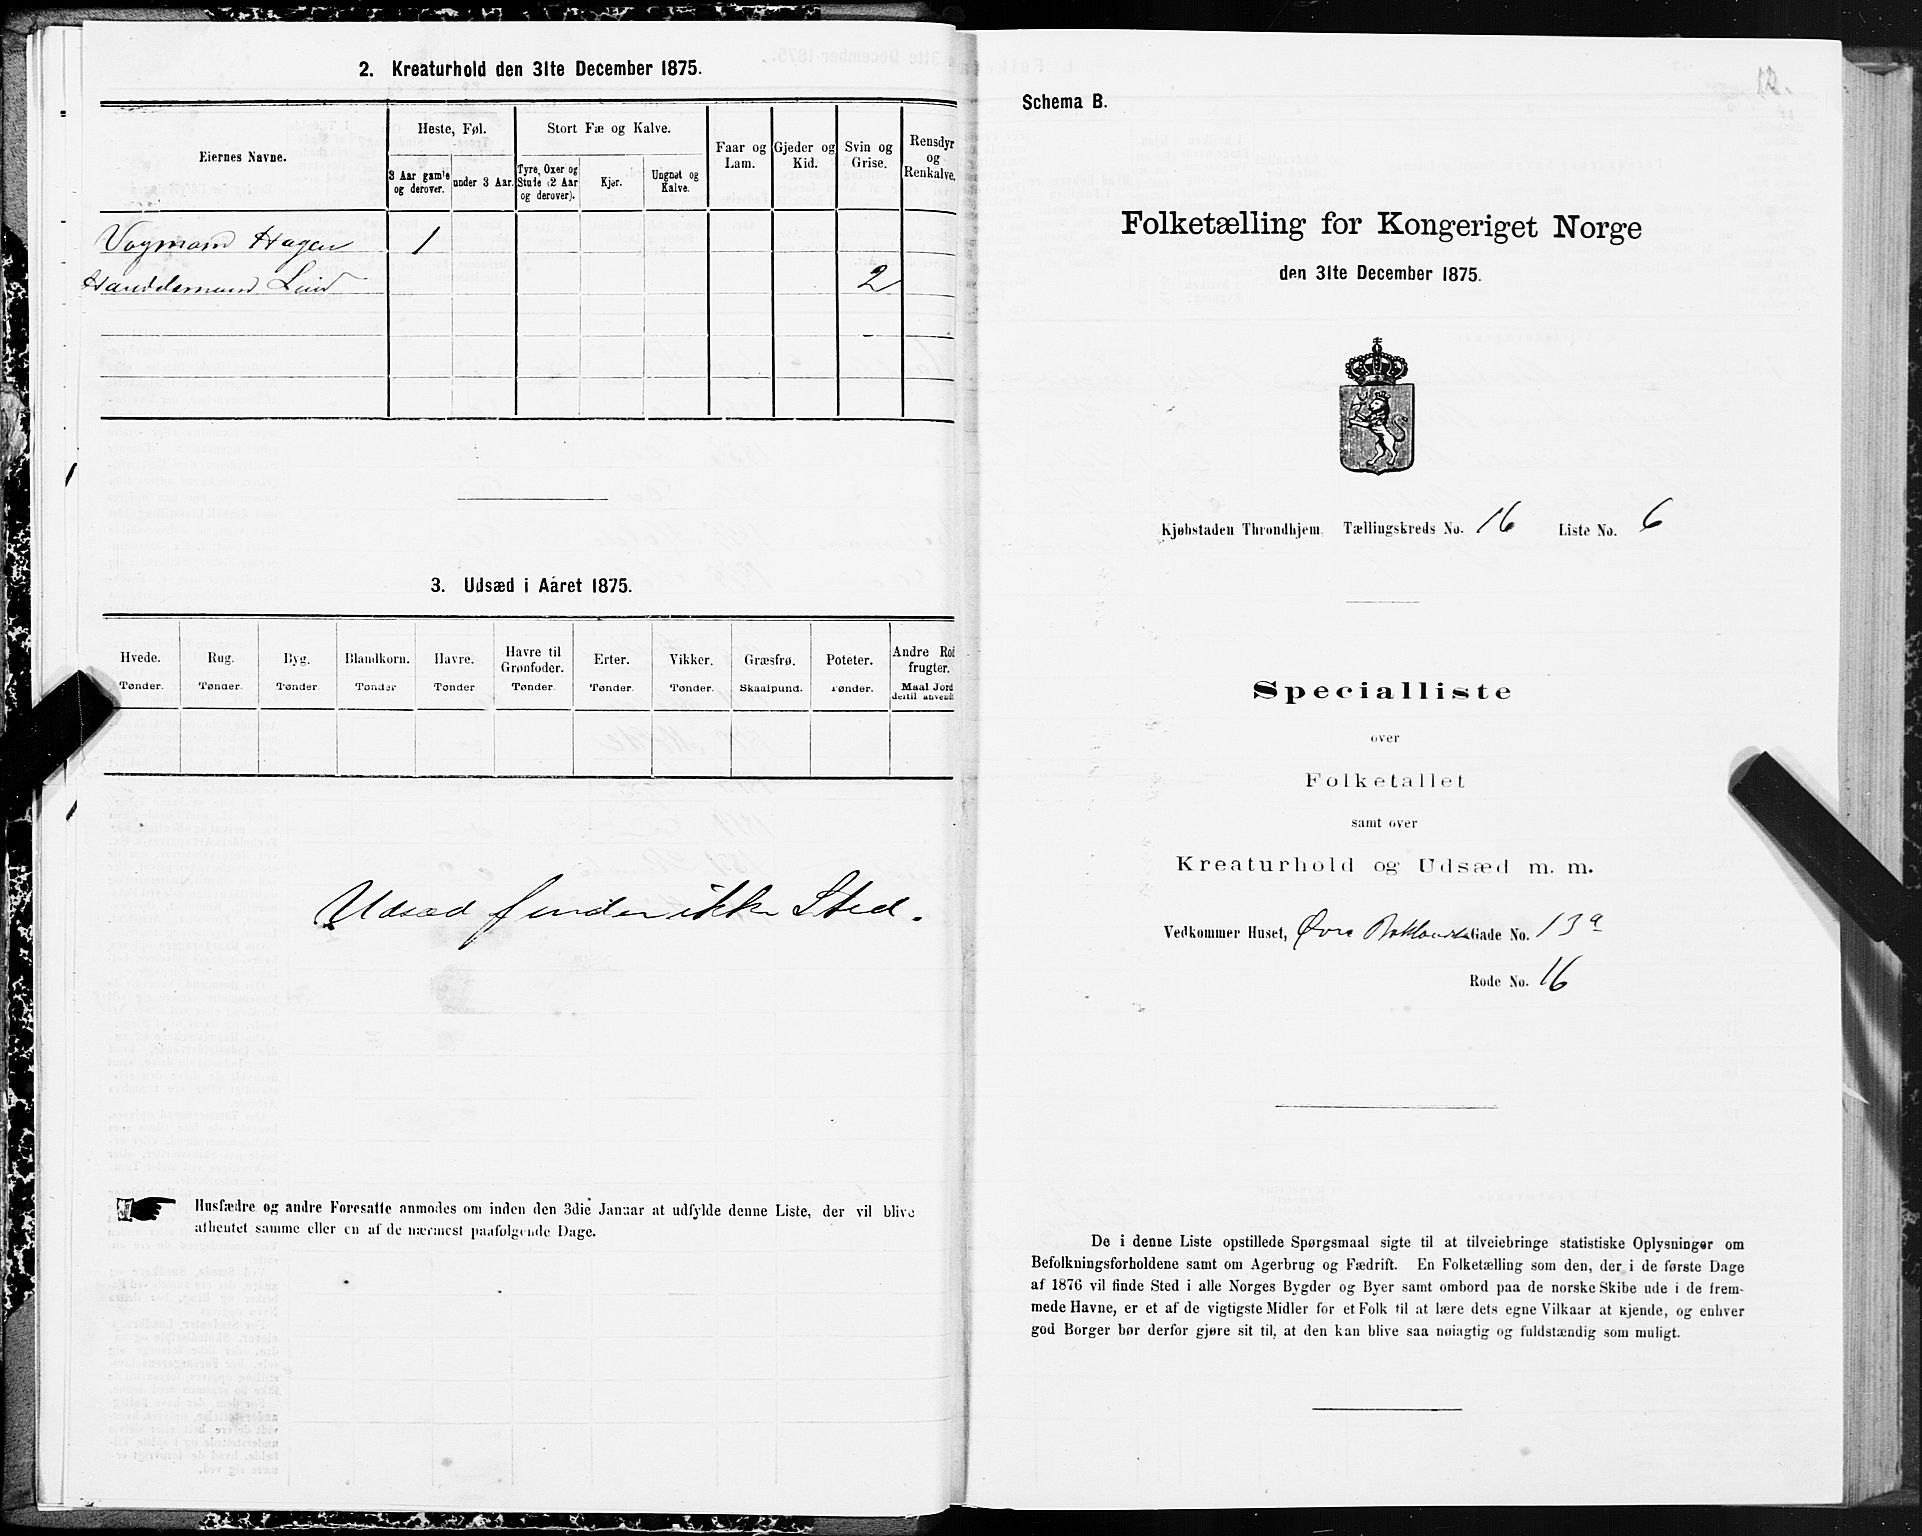 2. Kreaturhold den 31te December 1875.
Eiernes Navne.
Heste, Føl.
Stort Fæ og Kalve.
Faar og Lam.
Gjeder og Kid.
Svin og Grise.
Rensdyr og Renkalve.
3 Aar gamle og derover.
under 3 Aar.
Tyre, Oxer og Stude (2 Aar og derover).
Kjør.
Ungnøt og Kalve.
Vognmand Hagen 1
Handelsmand Lein 2
3. Udsæd i Aaret 1875.
Hvede. Rug. Byg. Blandkorn. Havre. Havre til Grønfoder. Erter. Vikker. Græsfrø. Poteter. Andre Rodfrugter.
Tønder. Tønder. Tønder. Tønder Tønder Tønder. Tønder. Tønder. Skaalpund. Tønder. Maal Jord dertil anvendt
Udsæd finder ikke Sted.
Husfædre og andre Foresatte anmodes om inden den 3die Januar at udfylde denne Liste, der vil blive
afhentet samme eller en af de nærmest paafølgende Dage.
12.
Schema B.
Folketælling for Kongeriget Norge
den 31te December 1875.
Kjøbstaden Throndhjem. Tællingskreds No. 16 Liste No. 6
Specialliste
over
Folketallet
samt over
Kreaturhold og Udsæd m. m.
Vedkommer Huset, Øvre Baklandts Gade No. 13a
Rode No. 16
De i denne Liste opstillede Spørgsmaal sigte til at tilveiebringe statistiske Oplysninger om
Befolkningsforholdene samt om Agerbrug og Fædrift. En Folketælling som den, der i de første Dage
af 1876 vil finde Sted i alle Norges Bygder og Byer samt ombord paa de norske Skibe ude i de frem-
mede Havne, er et af de vigtigste Midler for et Folk til at lære dets egne Vilkaar at kjende, og enhver
god Borger bør derfor gjøre sit til, at den kan blive saa nøiagtig og fuldstændig som muligt.